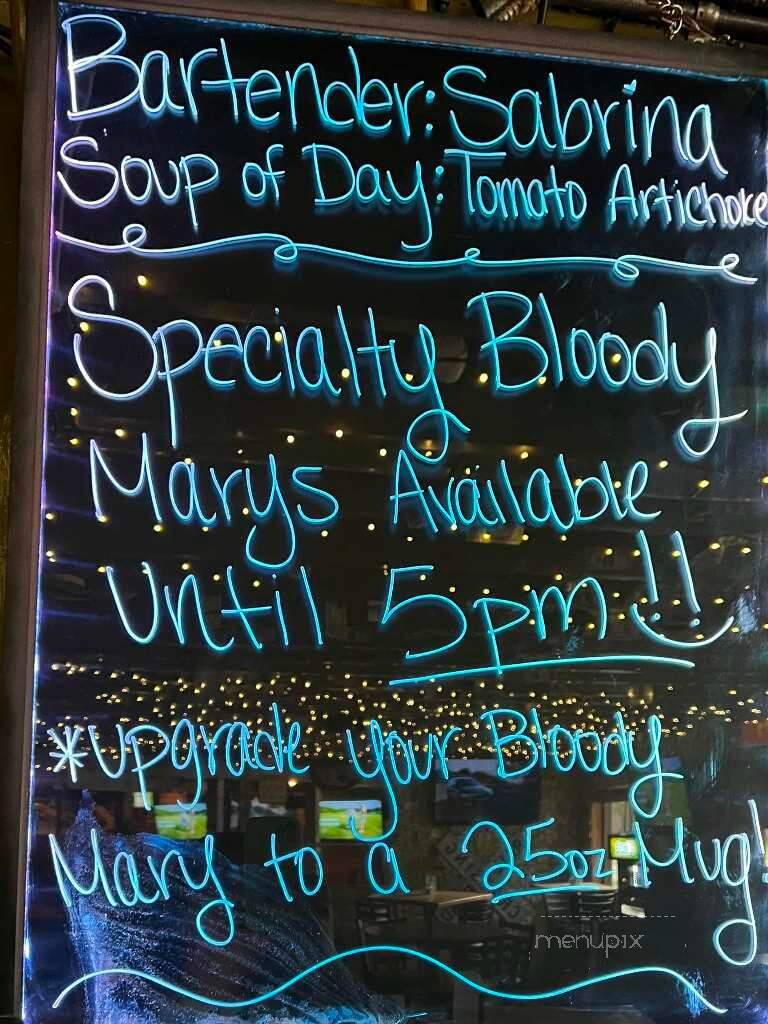 Bartender: Sabrina
Soup of Day: Tomato Artichoke
Specialty Bloody
Marys Available
Until 5pm!!
*upgrade your Bloody
Mary to a 25oz Mug!
menupix